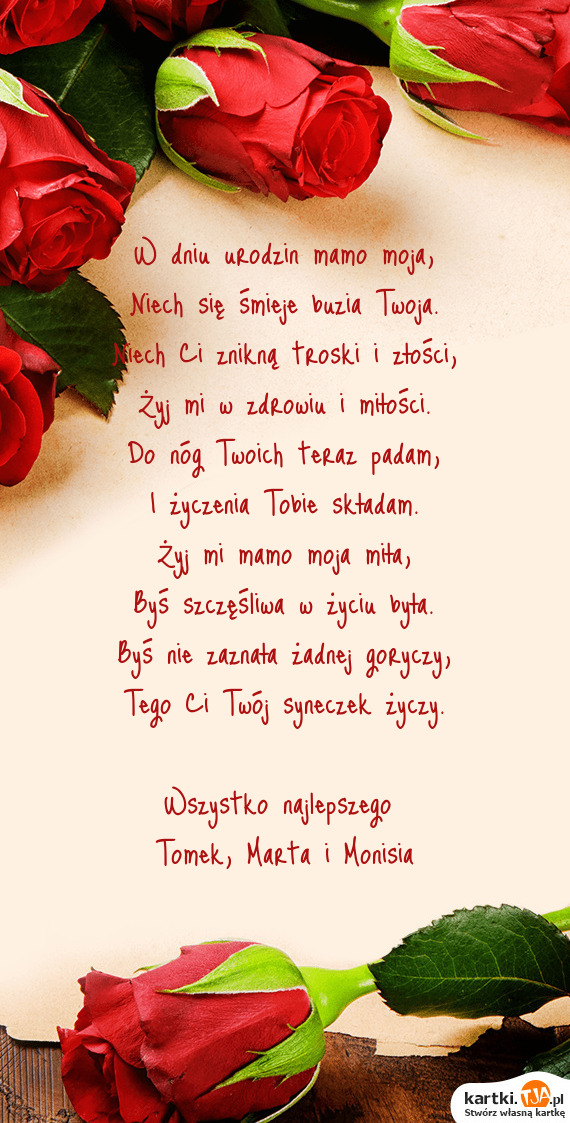 W dniu urodzin mamo moja,
Niech się śmieje buzia Twoja.
Niech Ci znikną troski i złości,
Żyj mi w zdrowiu i miłości.
Do nóg Twoich teraz padam,
I życzenia Tobie składam.
Żyj mi mamo moja miła,
Byś szczęśliwa w życiu była.
Byś nie zaznała żadnej goryczy,
Tego Ci Twój syneczek życzy.
Wszystko najlepszego
Tomek, Marta i Monisia
kartki.TJA.pl
Stwórz własną kartkę